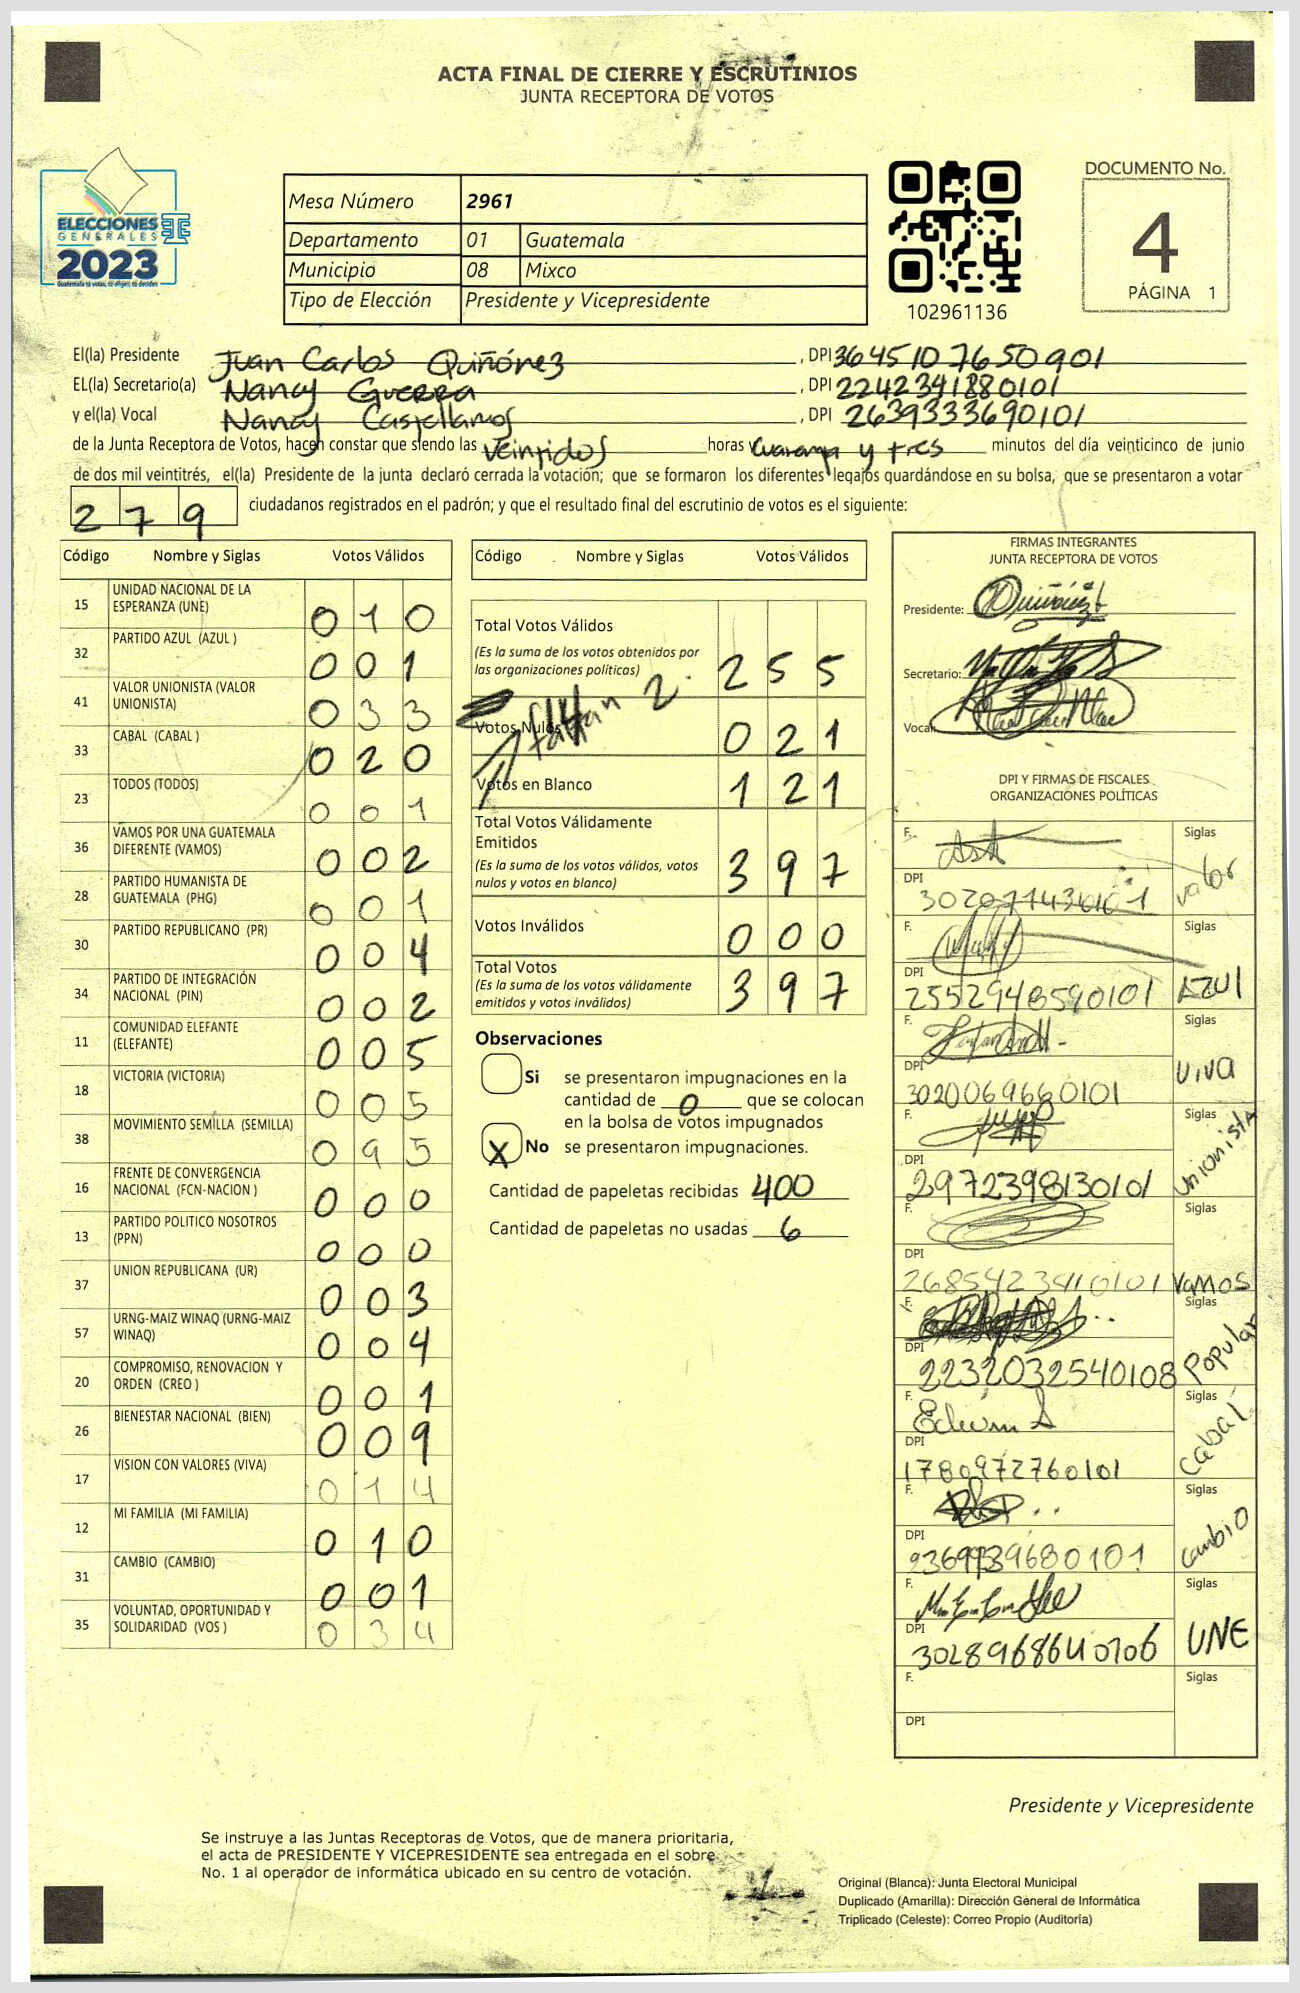 ACTA FINAL DE CIERRE Y ESCRUTINIOS
JUNTA RECEPTORA DE VOTOS
ELECCIONES
GENERALES
2023
Guatemala tú votas, tú eliges, tú decides
Mesa Número 2961
Departamento 01 Guatemala
Municipio 08 Mixco
Tipo de Elección Presidente y Vicepresidente
102961136
DOCUMENTO No.
4
PÁGINA 1
El(la) Presidente Juan Carlos Quiñónez , DPI 3645107650901
EL(la) Secretario(a) Nancy Guerra , DPI 2242341880101
y el(la) Vocal Nancy Castellanos , DPI 2639333690101
de la Junta Receptora de Votos, hacen constar que siendo las veintidos horas y cuarenta y tres minutos del día veinticinco de junio
de dos mil veintitrés, el(la) Presidente de la junta declaró cerrada la votación; que se formaron los diferentes legajos guardándose en su bolsa, que se presentaron a votar
279 ciudadanos registrados en el padrón; y que el resultado final del escrutinio de votos es el siguiente:
Código Nombre y Siglas Votos Válidos
15 UNIDAD NACIONAL DE LA ESPERANZA (UNE) 010
32 PARTIDO AZUL (AZUL ) 001
41 VALOR UNIONISTA (VALOR UNIONISTA) 033
33 CABAL (CABAL ) 020
23 TODOS (TODOS) 001
36 VAMOS POR UNA GUATEMALA DIFERENTE (VAMOS) 002
28 PARTIDO HUMANISTA DE GUATEMALA (PHG) 001
30 PARTIDO REPUBLICANO (PR) 004
34 PARTIDO DE INTEGRACIÓN NACIONAL (PIN) 002
11 COMUNIDAD ELEFANTE (ELEFANTE) 005
18 VICTORIA (VICTORIA) 005
38 MOVIMIENTO SEMILLA (SEMILLA) 095
16 FRENTE DE CONVERGENCIA NACIONAL (FCN-NACION ) 000
13 PARTIDO POLITICO NOSOTROS (PPN) 000
37 UNION REPUBLICANA (UR) 003
57 URNG-MAIZ WINAQ (URNG-MAIZ WINAQ) 004
20 COMPROMISO, RENOVACION Y ORDEN (CREO ) 001
26 BIENESTAR NACIONAL (BIEN) 009
17 VISION CON VALORES (VIVA) 014
12 MI FAMILIA (MI FAMILIA) 010
31 CAMBIO (CAMBIO) 001
35 VOLUNTAD, OPORTUNIDAD Y SOLIDARIDAD (VOS ) 034
Código Nombre y Siglas Votos Válidos
Total Votos Válidos 255
(Es la suma de los votos obtenidos por
las organizaciones políticas)
faltan 2.
Votos Nulos 021
Votos en Blanco 121
Total Votos Válidamente
Emitidos 397
(Es la suma de los votos válidos, votos
nulos y votos en blanco)
Votos Inválidos 000
Total Votos 397
(Es la suma de los votos válidamente
emitidos y votos inválidos)
Observaciones
Si se presentaron impugnaciones en la
cantidad de 0 que se colocan
en la bolsa de votos impugnados
X No se presentaron impugnaciones.
Cantidad de papeletas recibidas 400
Cantidad de papeletas no usadas 6
FIRMAS INTEGRANTES
JUNTA RECEPTORA DE VOTOS
Presidente:
Secretario:
Vocal:
DPI Y FIRMAS DE FISCALES
ORGANIZACIONES POLÍTICAS
F. Siglas
DPI valor
F. Siglas
DPI 2552948590101 AZUL
F. Siglas
DPI 3020069660101 VIVA
F. Siglas
DPI 2972398130101 Unionista
F. Siglas
DPI 2685423410101 Vamos
F. Siglas
DPI 2232032540108 Popular
F. Edwin S Siglas
DPI 1780972760101 Cabal
F. Siglas
DPI cambio
F. Siglas
DPI 3028968640706 UNE
F. Siglas
DPI
Presidente y Vicepresidente
Se instruye a las Juntas Receptoras de Votos, que de manera prioritaria,
el acta de PRESIDENTE Y VICEPRESIDENTE sea entregada en el sobre
No. 1 al operador de informática ubicado en su centro de votación.
Original (Blanca): Junta Electoral Municipal
Duplicado (Amarilla): Dirección General de Informática
Triplicado (Celeste): Correo Propio (Auditoría)